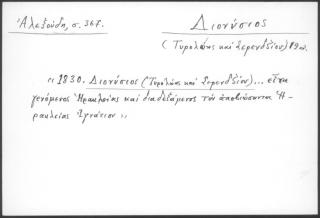 Ἀλεξούδη, σ. 367.
Διονύσιος
(Τυρολόης καὶ Σερεντζίου) 19 αι.
« 1830. Διονύσιος (Τυρολόης καὶ Σερεντζίου)... εἶτα
γενόμενος Ἡρακλείας καὶ διαδεξάμενος τὸν ἀποβιώσαντα Ἡ-
ρακλείας Ἰγνάτιον »